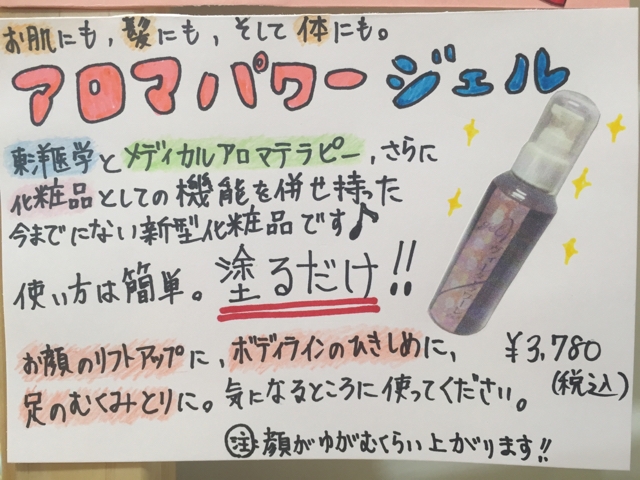 お肌にも,髪にも,そして体にも。
アロマパワージェル
東洋医学とメディカルアロマテラピー,さらに
化粧品としての機能を併せ持った
今までにない新型化粧品です♪
使い方は簡単。塗るだけ!!
お顔のリフトアップに,ボディラインのひきしめに,
足のむくみとりに。気になるところに使ってください。
¥3,780
(税込)
注 顔がゆがむくらい上がります!!